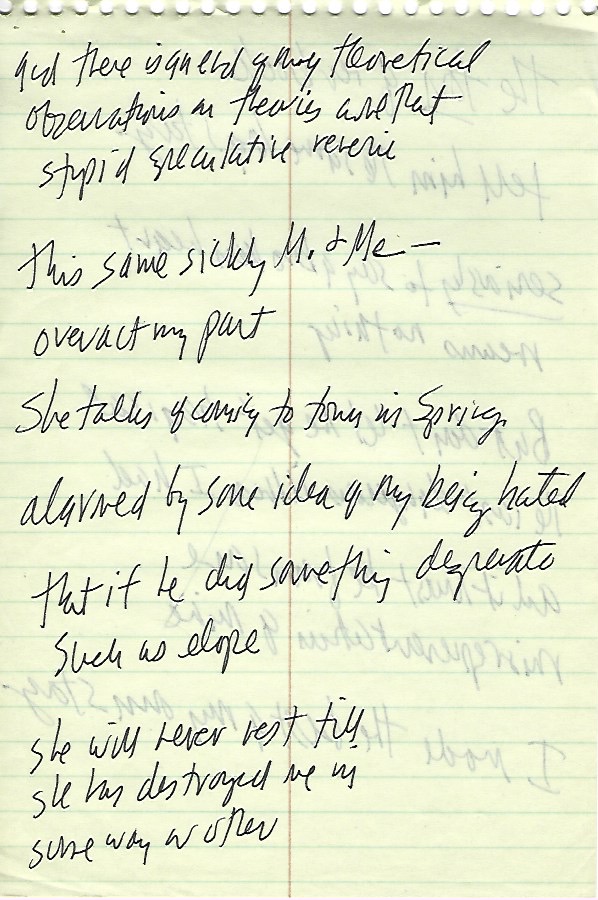 and there is an end of my theoretical
observations on theories and that
stupid speculative reverie
this same sickly M. & Me —
overact my part
She talks of coming to town in Spring
alarmed by some idea of my being hated
that if he did something desperate
such as elope
she will never rest till
she has destroyed me in
some way or other